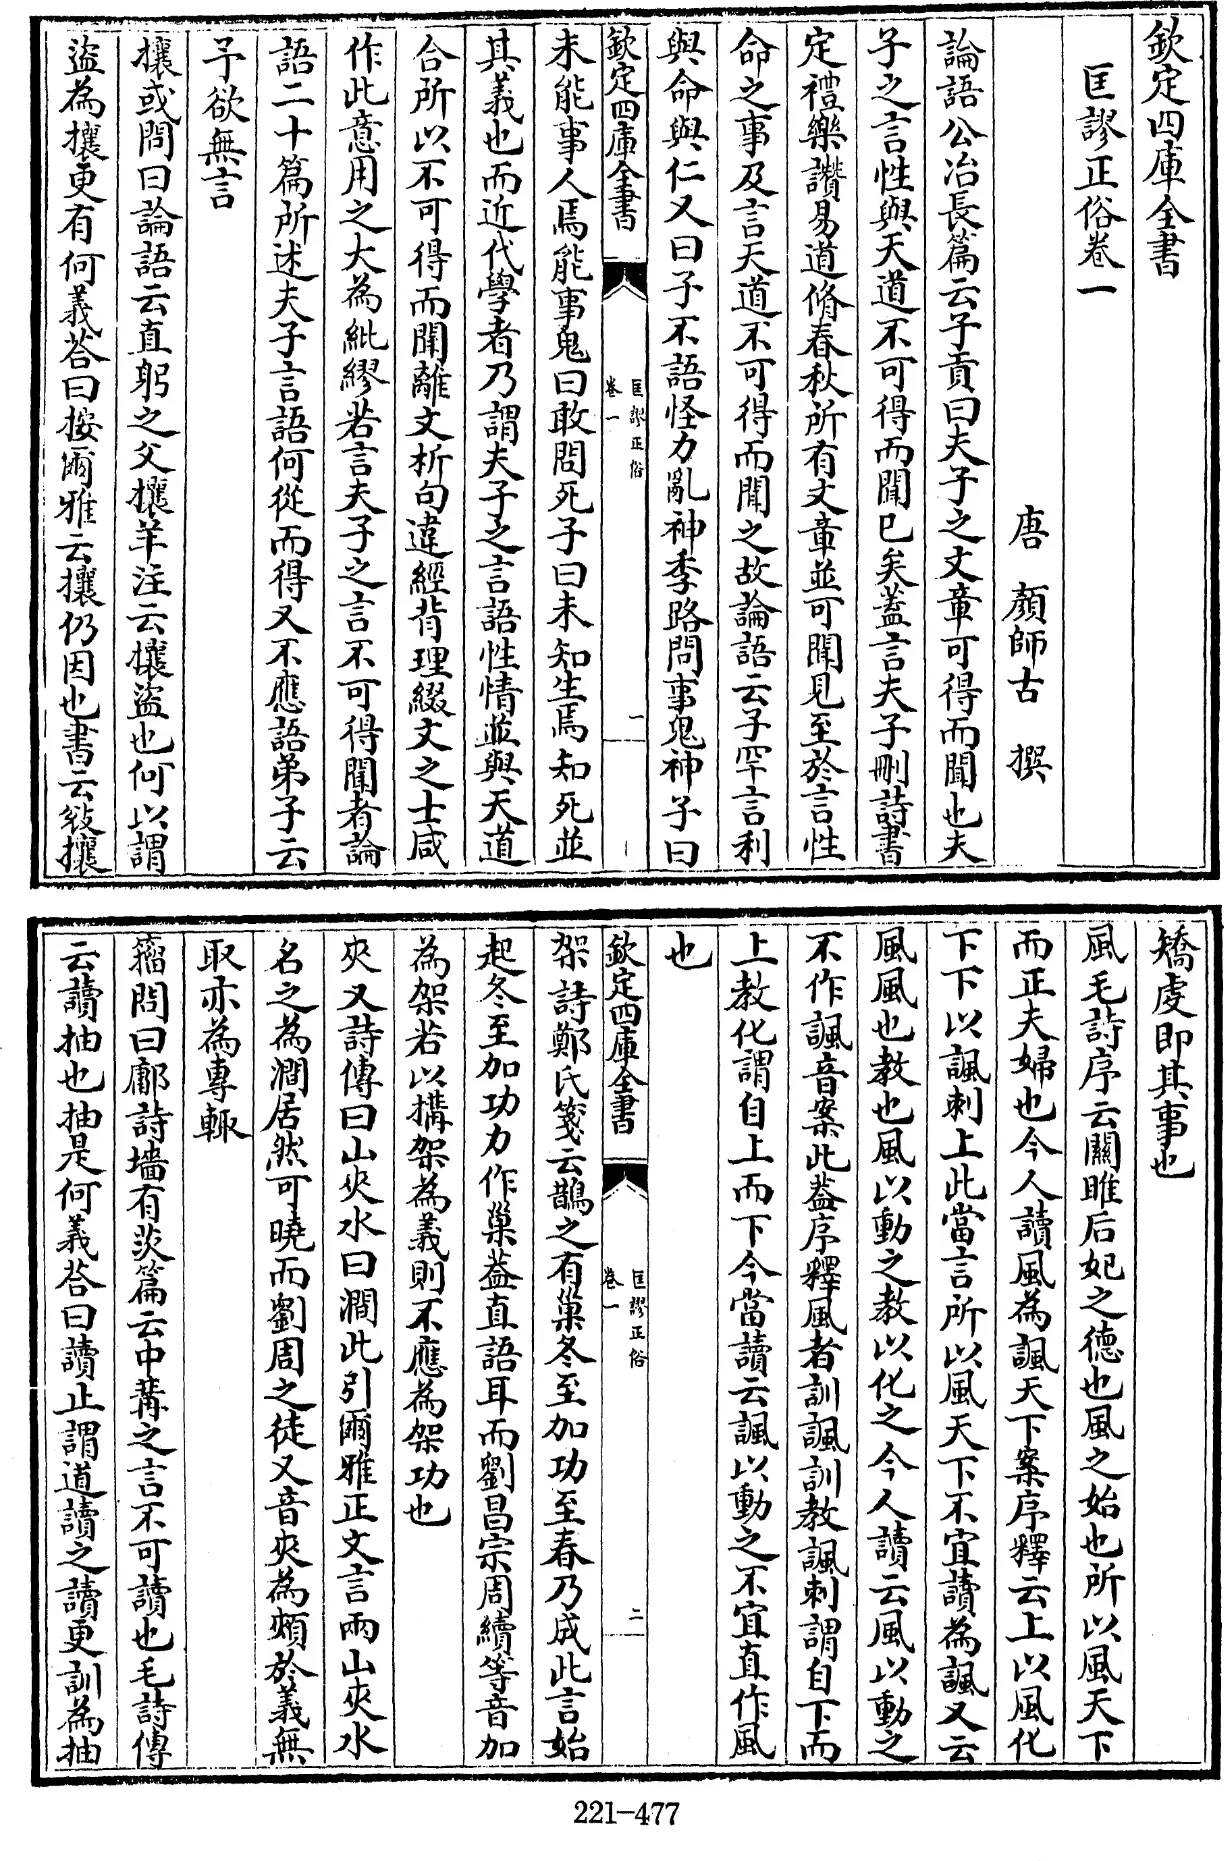 欽定四庫全書
匡謬正俗卷一
唐 顏師古 撰
論語公冶長篇云子貢曰夫子之文章可得而聞也夫
子之言性與天道不可得而聞已矣蓋言夫子刪詩書
定禮樂讚易道脩春秋所有文章並可聞見至於言性
命之事及言天道不可得而聞之故論語云子罕言利
與命與仁又曰子不語怪力亂神季路問事鬼神子曰
欽定四庫全書
匡謬正俗
卷一
一
未能事人焉能事鬼曰敢問死子曰未知生焉知死並
其義也而近代學者乃謂夫子之言語性情並與天道
合所以不可得而聞離文析句違經背理綴文之士咸
作此意用之大為紕繆若言夫子之言不可得聞者論
語二十篇所述夫子言語何從而得又不應語弟子云
予欲無言
攘或問曰論語云直躬之父攘羊注云攘盜也何以謂
盜為攘更有何義荅曰按爾雅云攘仍因也書云敓攘
矯虔即其事也
風毛詩序云關雎后妃之德也風之始也所以風天下
而正夫婦也今人讀風為諷天下案序釋云上以風化
下下以諷刺上此當言所以風天下不宜讀為諷又云
風風也教也風以動之教以化之今人讀云風以動之
不作諷音案此蓋序釋風者訓諷訓教諷刺謂自下而
上教化謂自上而下今當讀云諷以動之不宜直作風
也
欽定四庫全書
匡謬正俗
卷一
二
架詩鄭氏箋云鵲之有巢冬至加功至春乃成此言始
起冬至加功力作巢蓋直語耳而劉昌宗周續等音加
為架若以搆架為義則不應為架功也
夾又詩傳曰山夾水曰澗此引爾雅正文言兩山夾水
名之為澗居然可曉而劉周之徒又音夾為頰於義無
取亦為專輒
籀問曰鄘詩墻有茨篇云中冓之言不可讀也毛詩傳
云讀抽也抽是何義荅曰讀止謂道讀之讀更訓為抽
221-477